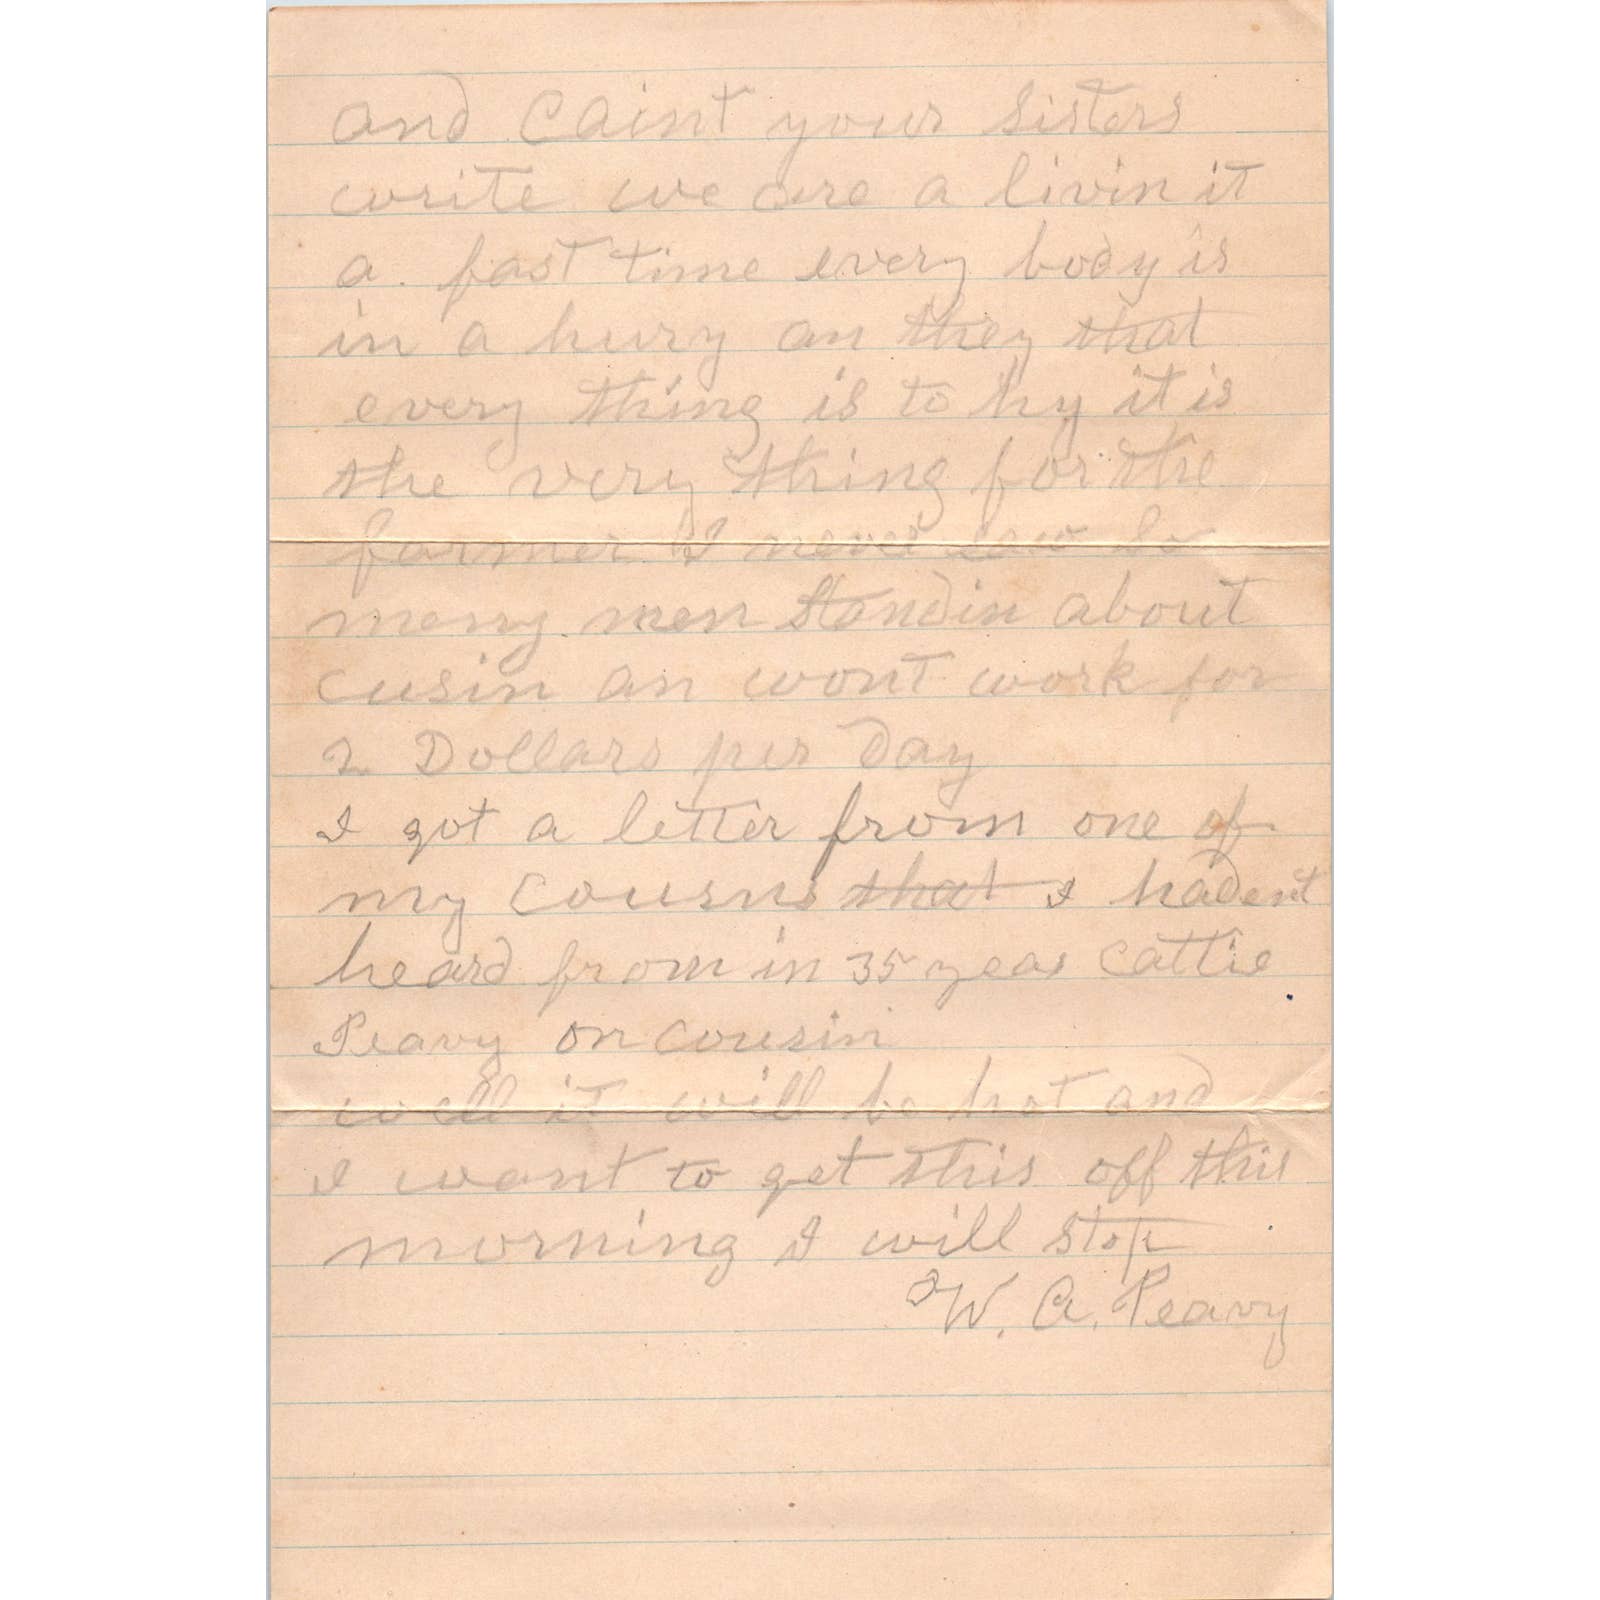 and Caint your Sisters
write we are a livin it
a fast time every body is
in a hury an they that
every thing is to hy it is
the very thing for the
farmer I never saw So
meny men Standin about
cusin an wont work for
2 Dollars per day
I got a letter from one of
my Cousns that I hadent
heard from in 35 year Cattie
Peavy on Cousin
well it will be hot and
I want to get this off this
morning I will Stop
W. A. Peavy